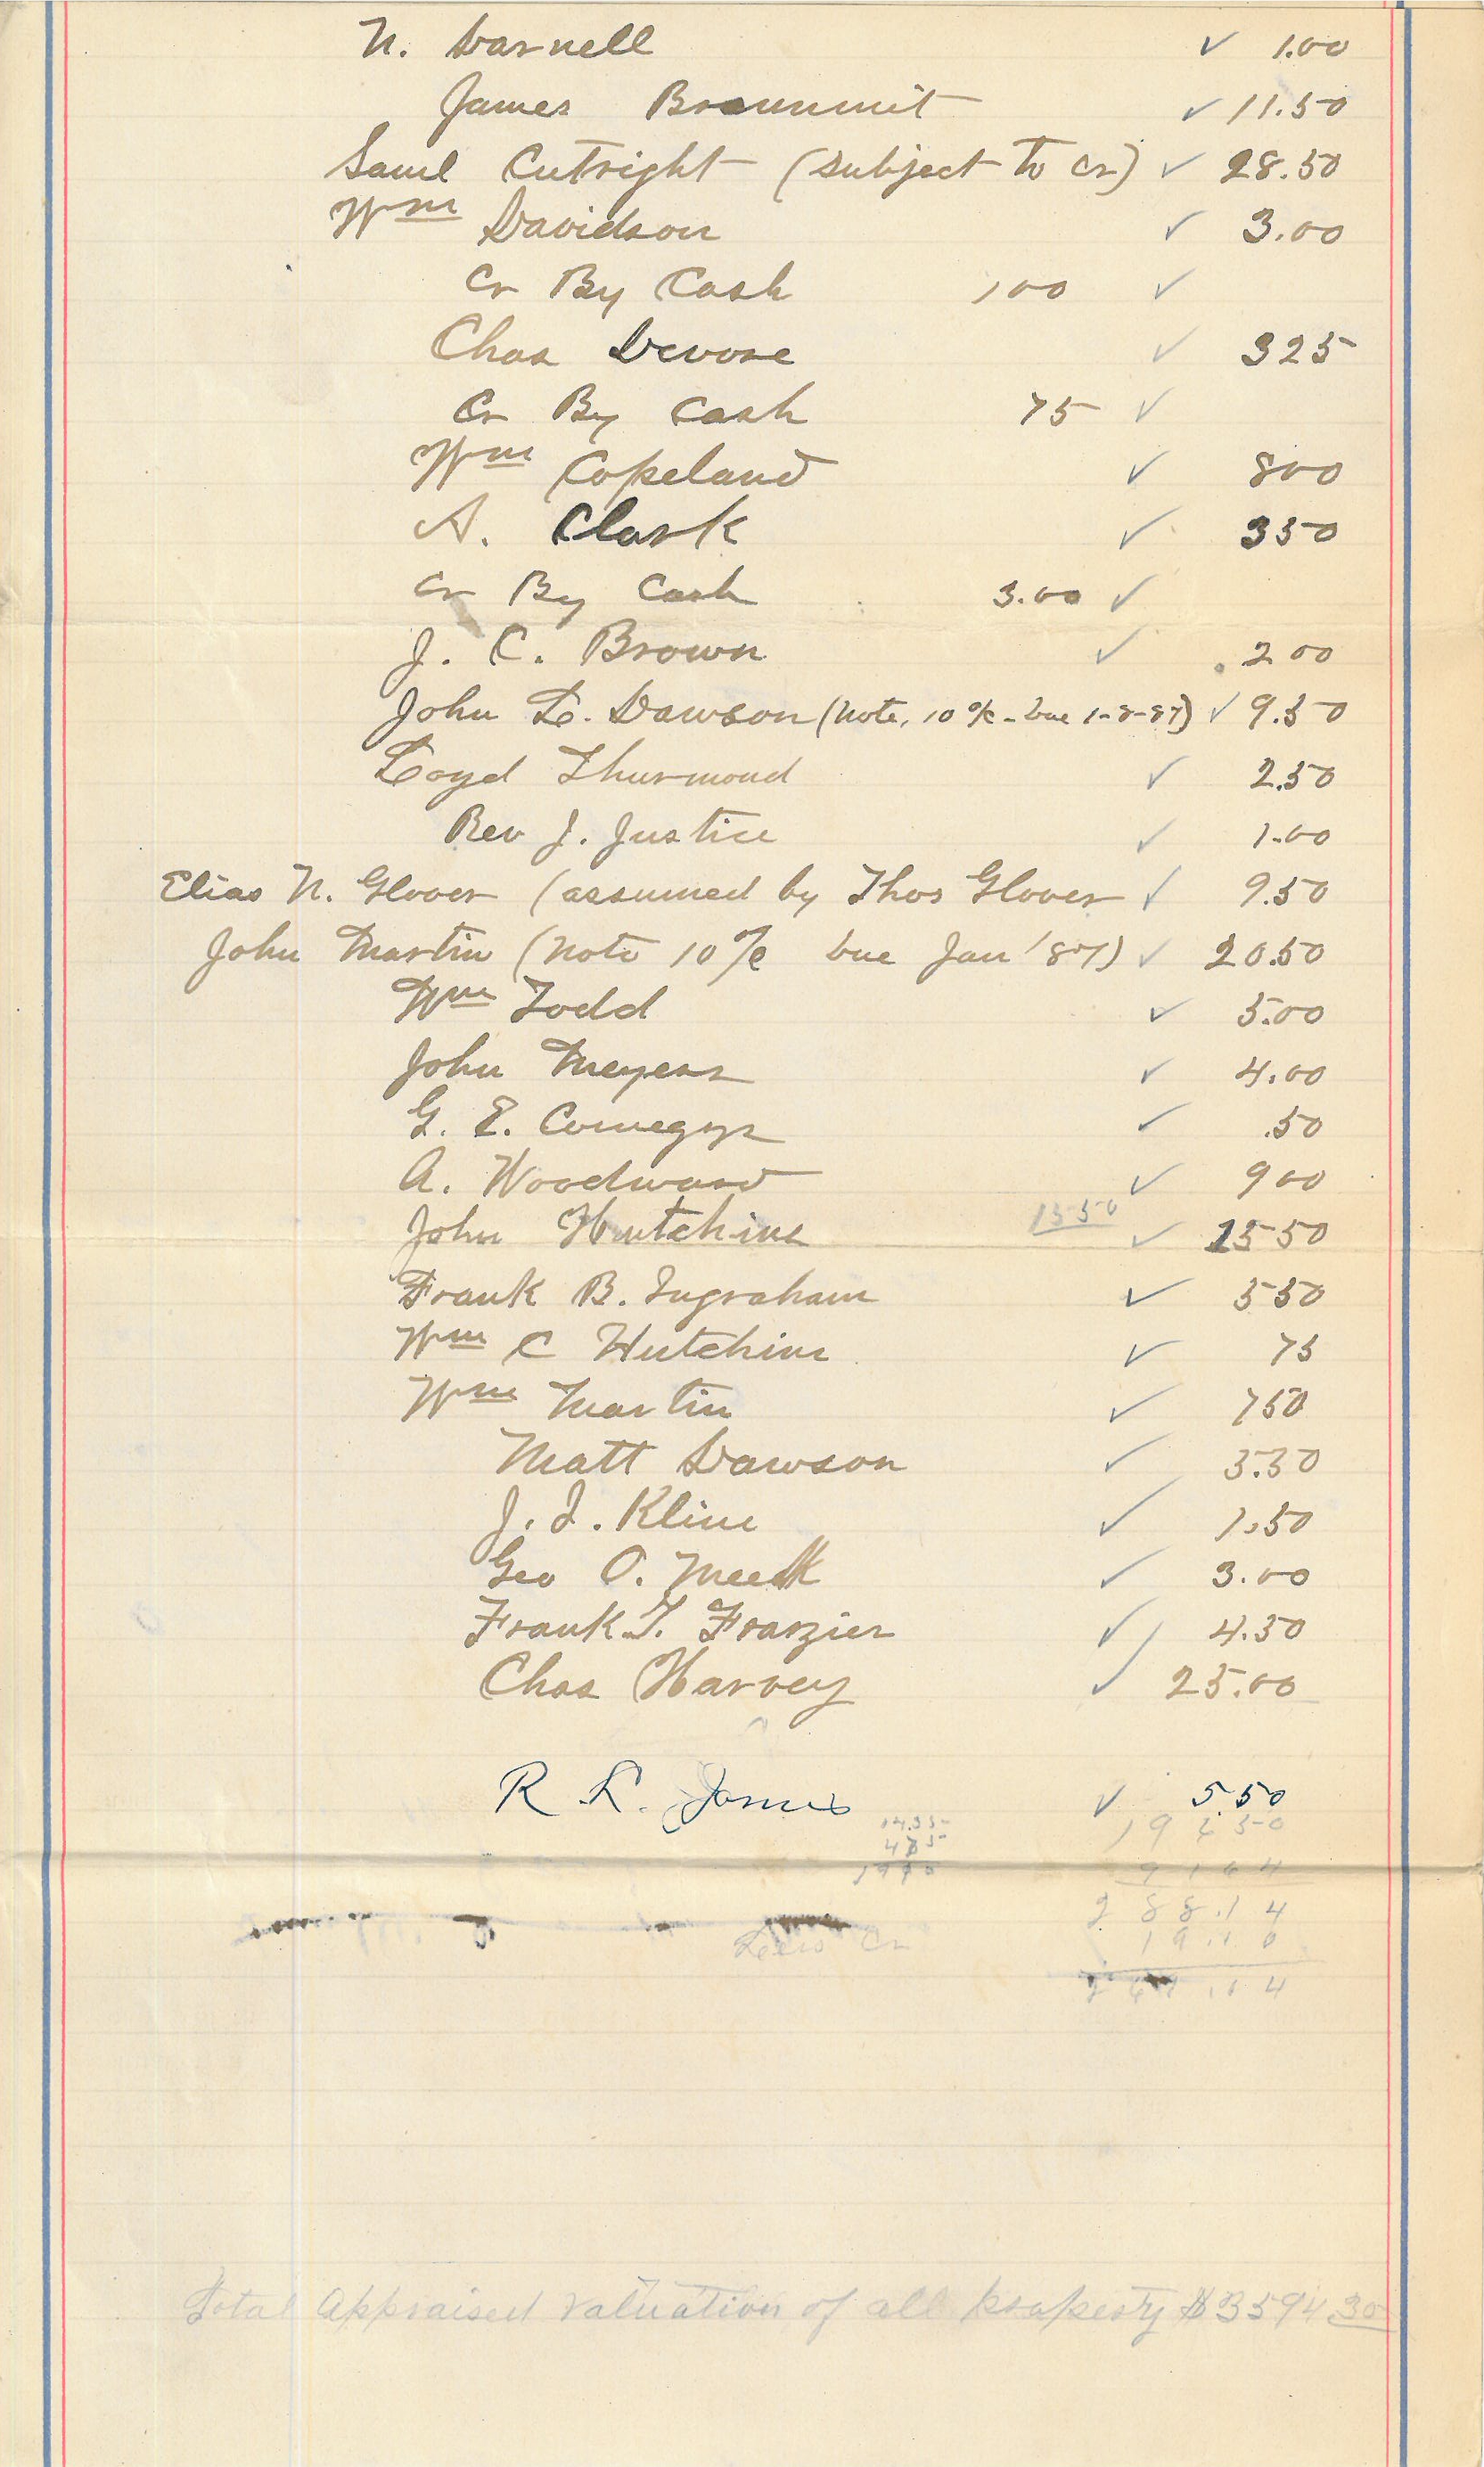 N. Darnell ✓ 1.00
James Brounmit ✓ 11.50
Saml Cutright (subject to cr) ✓ 28.50
Wm Davidson ✓ 3.00
Cr By Cash 100 ✓
Chas Devore ✓ 325
Cr By Cash 75 ✓
Wm Copeland ✓ 800
A. Clark ✓ 350
Cr By Cash 3.00 ✓
J. C. Brown ✓ 200
John L. Dawson (Note, 10% - due 1-8-87) ✓ 9.50
Loyd Thurmond ✓ 2.50
Rev J. Justice ✓ 1.00
Elias N. Glover (assumed by Thos Glover ✓ 9.50
John Martin (Note 10% due Jan '87) ✓ 20.50
Wm Todd ✓ 5.00
John Meyers ✓ 4.00
G. E. Comegys ✓ .50
A. Woodward ✓ 900
1550
John Hutchins ✓ 1550
Frank B. Ingraham ✓ 550
Wm C Hutchins ✓ 75
Wm Martin ✓ 750
Matt Dawson ✓ 3.50
J. J. Kline ✓ 1.50
Geo O. Meek ✓ 3.00
Frank T. Frazier ✓ 4.50
Chas Harvey ✓ 25.00
R. L. James ✓ 5.50
14.35
475
1910
9164
288.14
Less Cr 19.10
Total Appraised valuation of all property $3594 30